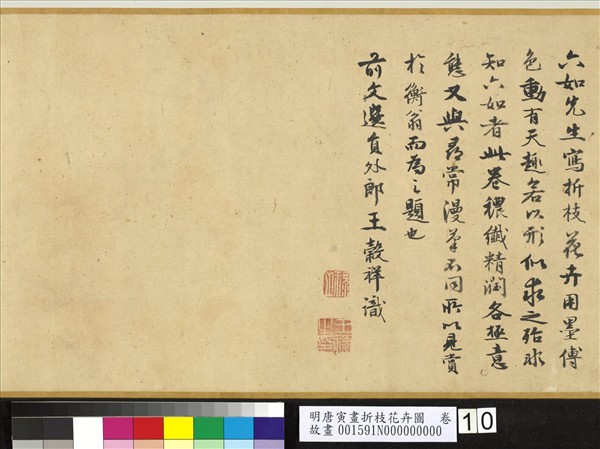 六如先生寫折枝花卉用墨傅
色動有天趣若以形似求之殆非
知六如者此卷穠纖精潤各極意
態又與尋常漫筆不同所以見賞
於衡翁而為之題也
前文選員外郎王穀祥識
明唐寅畫折枝花卉圖 卷
故畫 001591N000000000
10